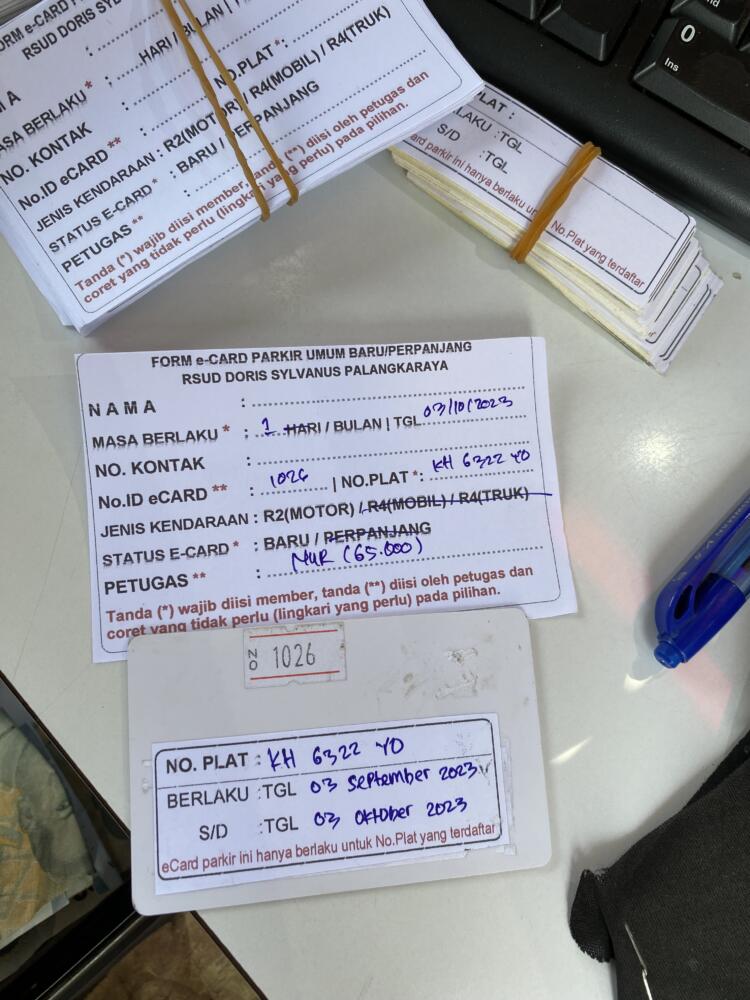 RSUD DORIS SYLV
HARI / BULAN | T
MASA BERLAKU * :
NO. KONTAK : NO.PLAT *:
No.ID eCARD ** :
JENIS KENDARAAN : R2(MOTOR) / R4(MOBIL) / R4(TRUK)
STATUS E-CARD * : BARU / PERPANJANG
PETUGAS ** :
Tanda (*) wajib diisi member, tanda (**) diisi oleh petugas dan
coret yang tidak perlu (lingkari yang perlu) pada pilihan.
LAT :
LAKU :TGL
S/D :TGL
ard parkir ini hanya berlaku untuk No.Plat yang terdaftar
0
Ins
FORM e-CARD PARKIR UMUM BARU/PERPANJANG
RSUD DORIS SYLVANUS PALANGKARAYA
N A M A :
MASA BERLAKU * : 1 HARI / BULAN | TGL 03/10/2023
NO. KONTAK :
No.ID eCARD ** : 1026 | NO.PLAT *: KH 6322 YO
JENIS KENDARAAN : R2(MOTOR) / R4(MOBIL) / R4(TRUK)
STATUS E-CARD * : BARU / PERPANJANG
PETUGAS ** : MUR (65.000)
Tanda (*) wajib diisi member, tanda (**) diisi oleh petugas dan
coret yang tidak perlu (lingkari yang perlu) pada pilihan.
NO 1026
NO. PLAT : KH 6322 YO
BERLAKU :TGL 03 September 2023
S/D :TGL 03 Oktober 2023
eCard parkir ini hanya berlaku untuk No.Plat yang terdaftar